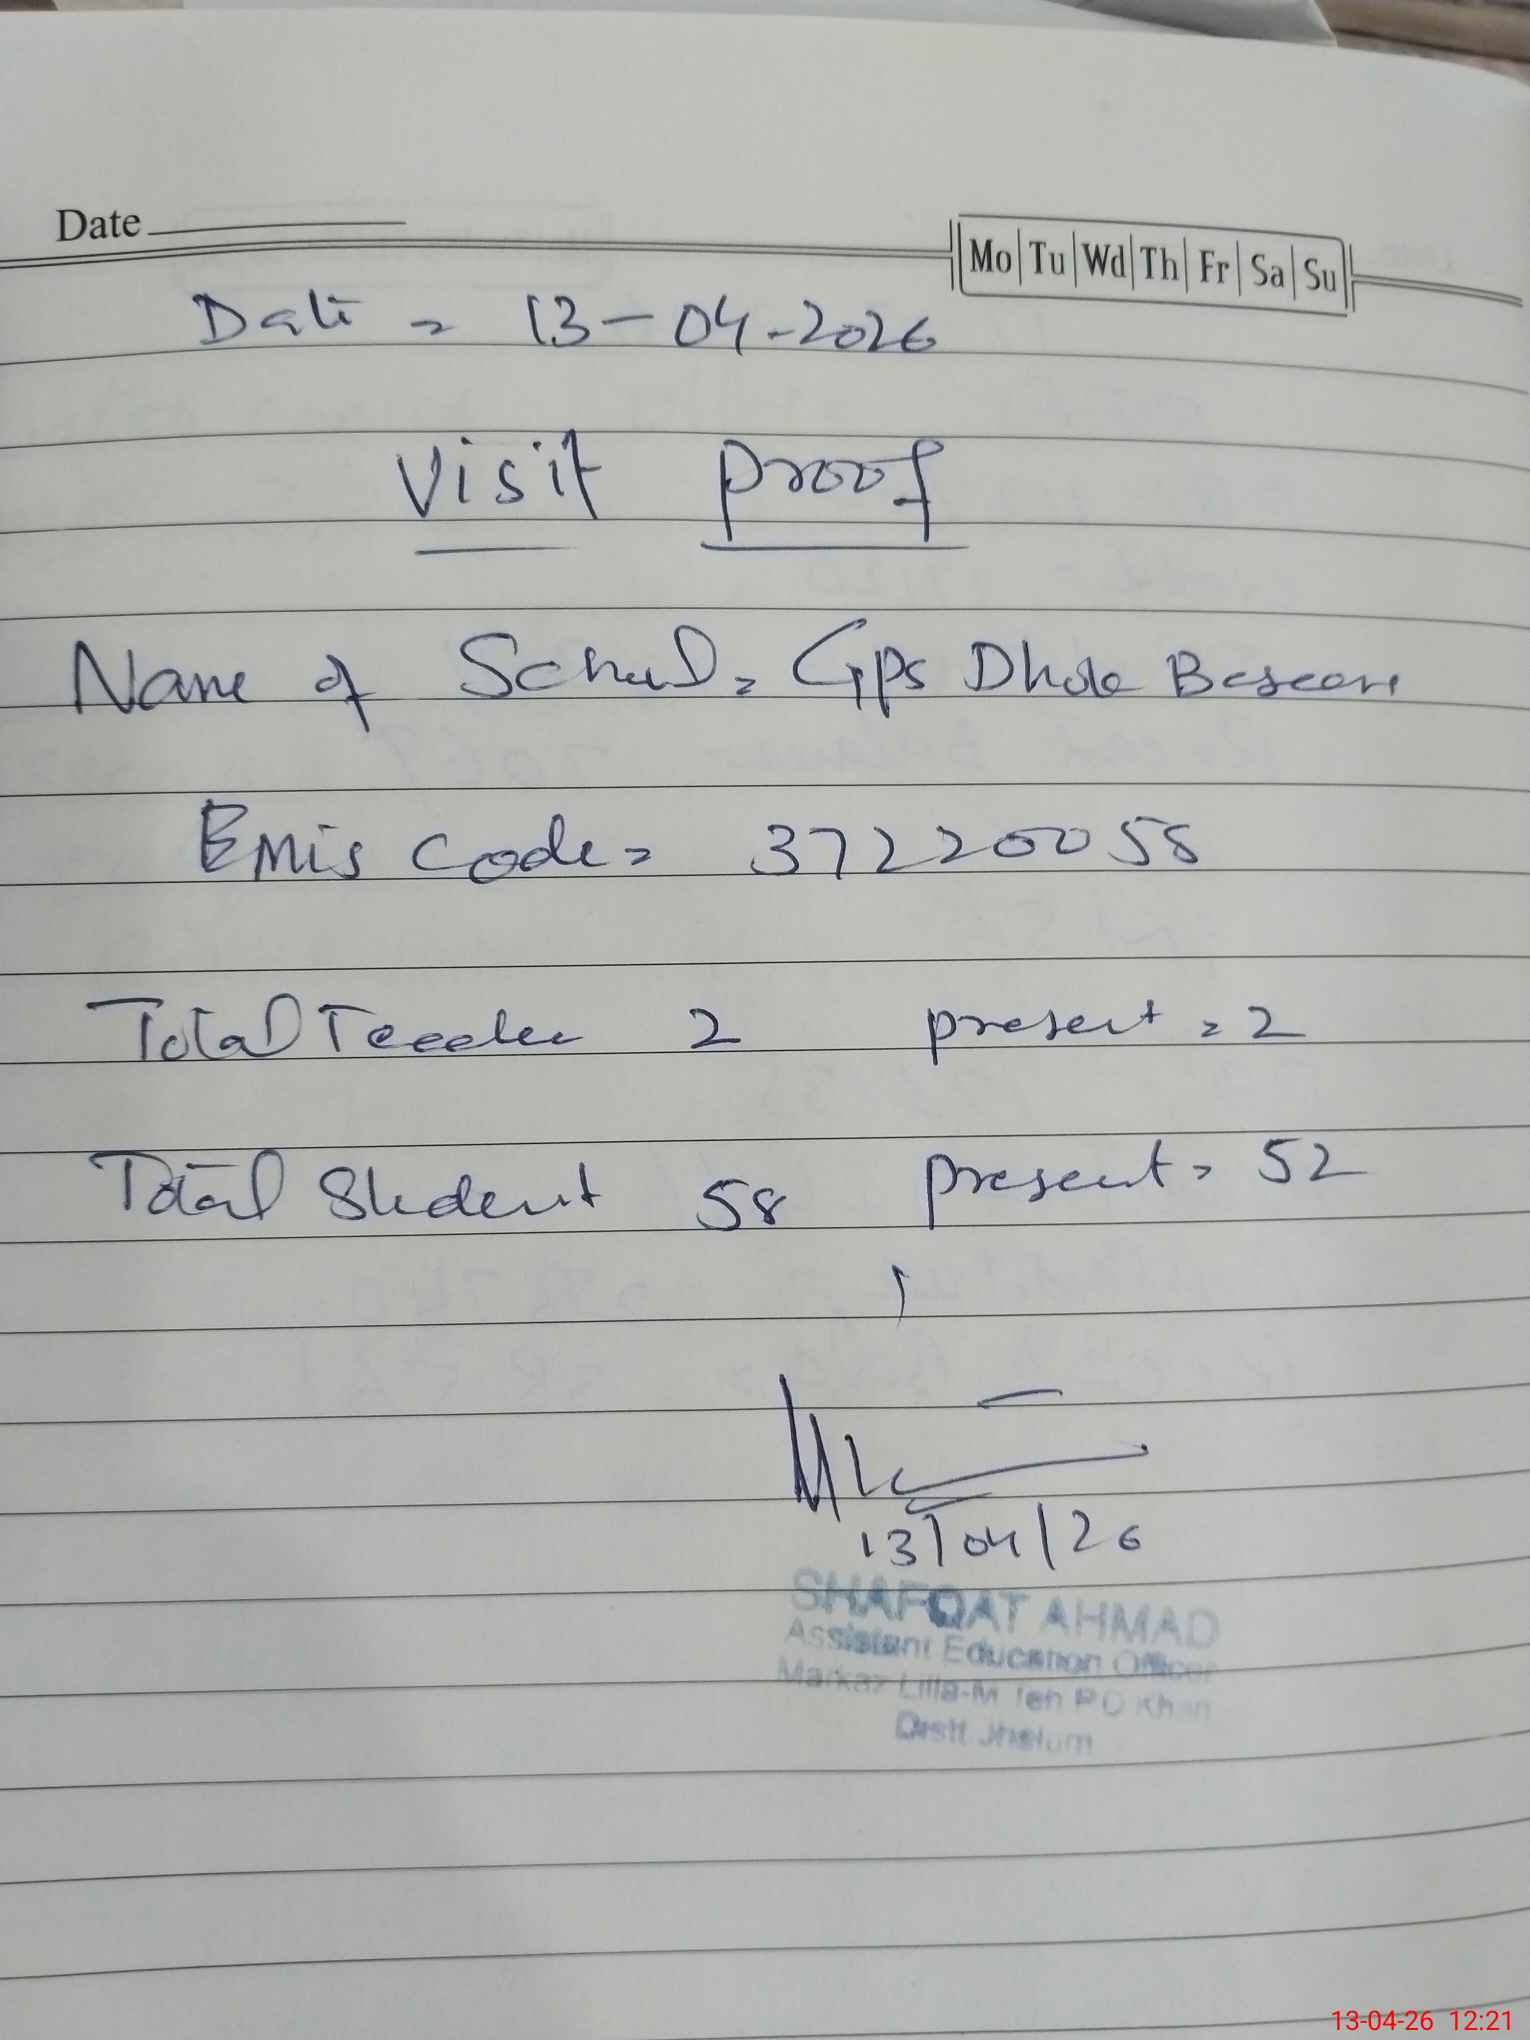 Date
Mo Tu Wd Th Fr Sa Su
Date = 13-04-2026
Visit Proof
Name of School = Gps Dhok
Emis Code = 37220058
Total Teacher 2 present = 2
Total Student 58 present = 52
13/04/26
SHAFQAT AHMAD
Assistant Education Officer
Markaz Lilla-M Teh P D Khan
Distt Jhelum
13-04-26 12:21